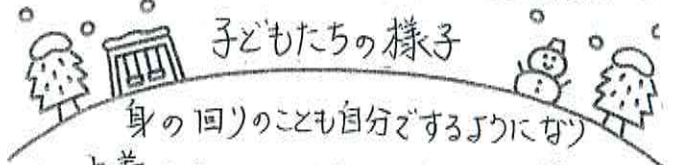 子どもたちの様子
身の回りのことも自分でするようになり